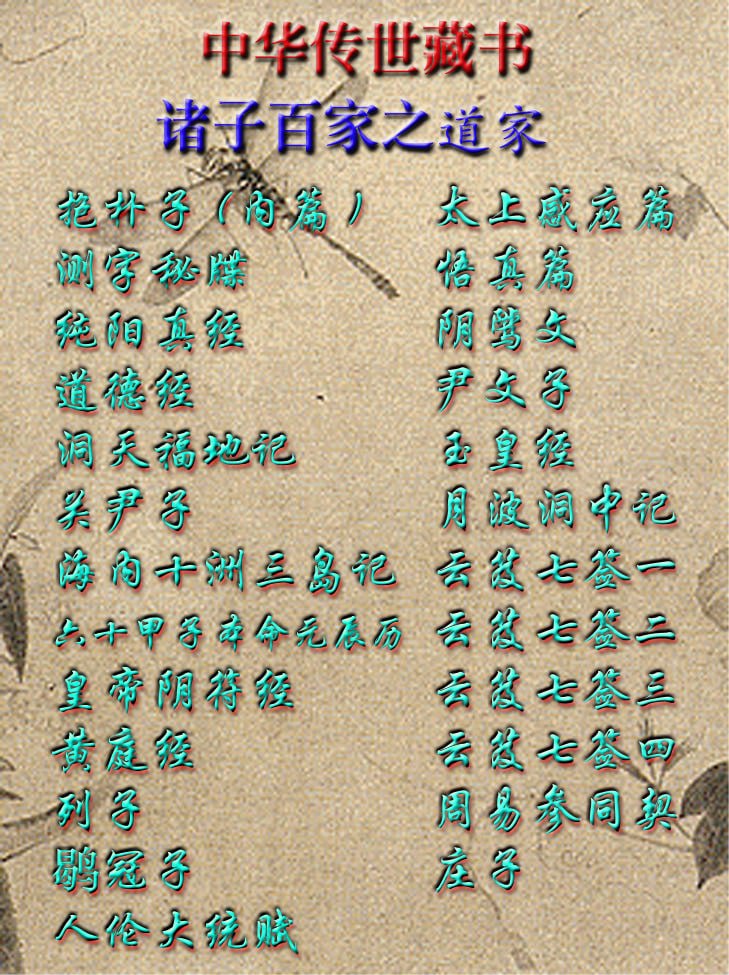 中华传世藏书
诸子百家之道家
抱朴子（内篇）
测字秘牒
纯阳真经
道德经
洞天福地记
关尹子
海内十洲三岛记
六十甲子本命元辰历
皇帝阴符经
黄庭经
列子
鹖冠子
人伦大统赋
太上感应篇
悟真篇
阴骘文
尹文子
玉皇经
月波洞中记
云笈七签一
云笈七签二
云笈七签三
云笈七签四
周易参同契
庄子